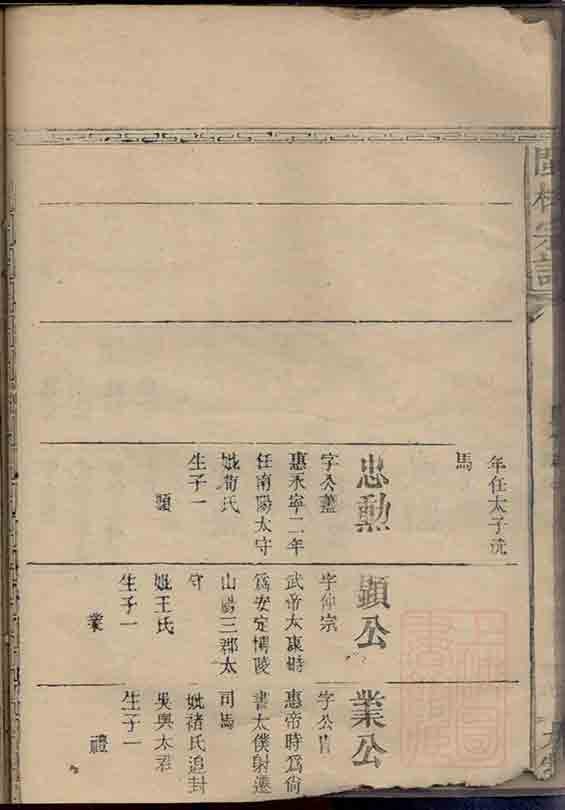 宗譜
年任太子洗
馬
忠勲
字公蓋
惠永寧二年
任南陽太守
妣荀氏
生子一
顕
顕公
字仲宗
武帝太康時
為安定博陵
山陽三郡太
守
妣王氏
生子一
業
業公
字公
惠帝時為尙
書太僕射遷
司馬
妣褚氏追封
吳興太君
生子一
禮